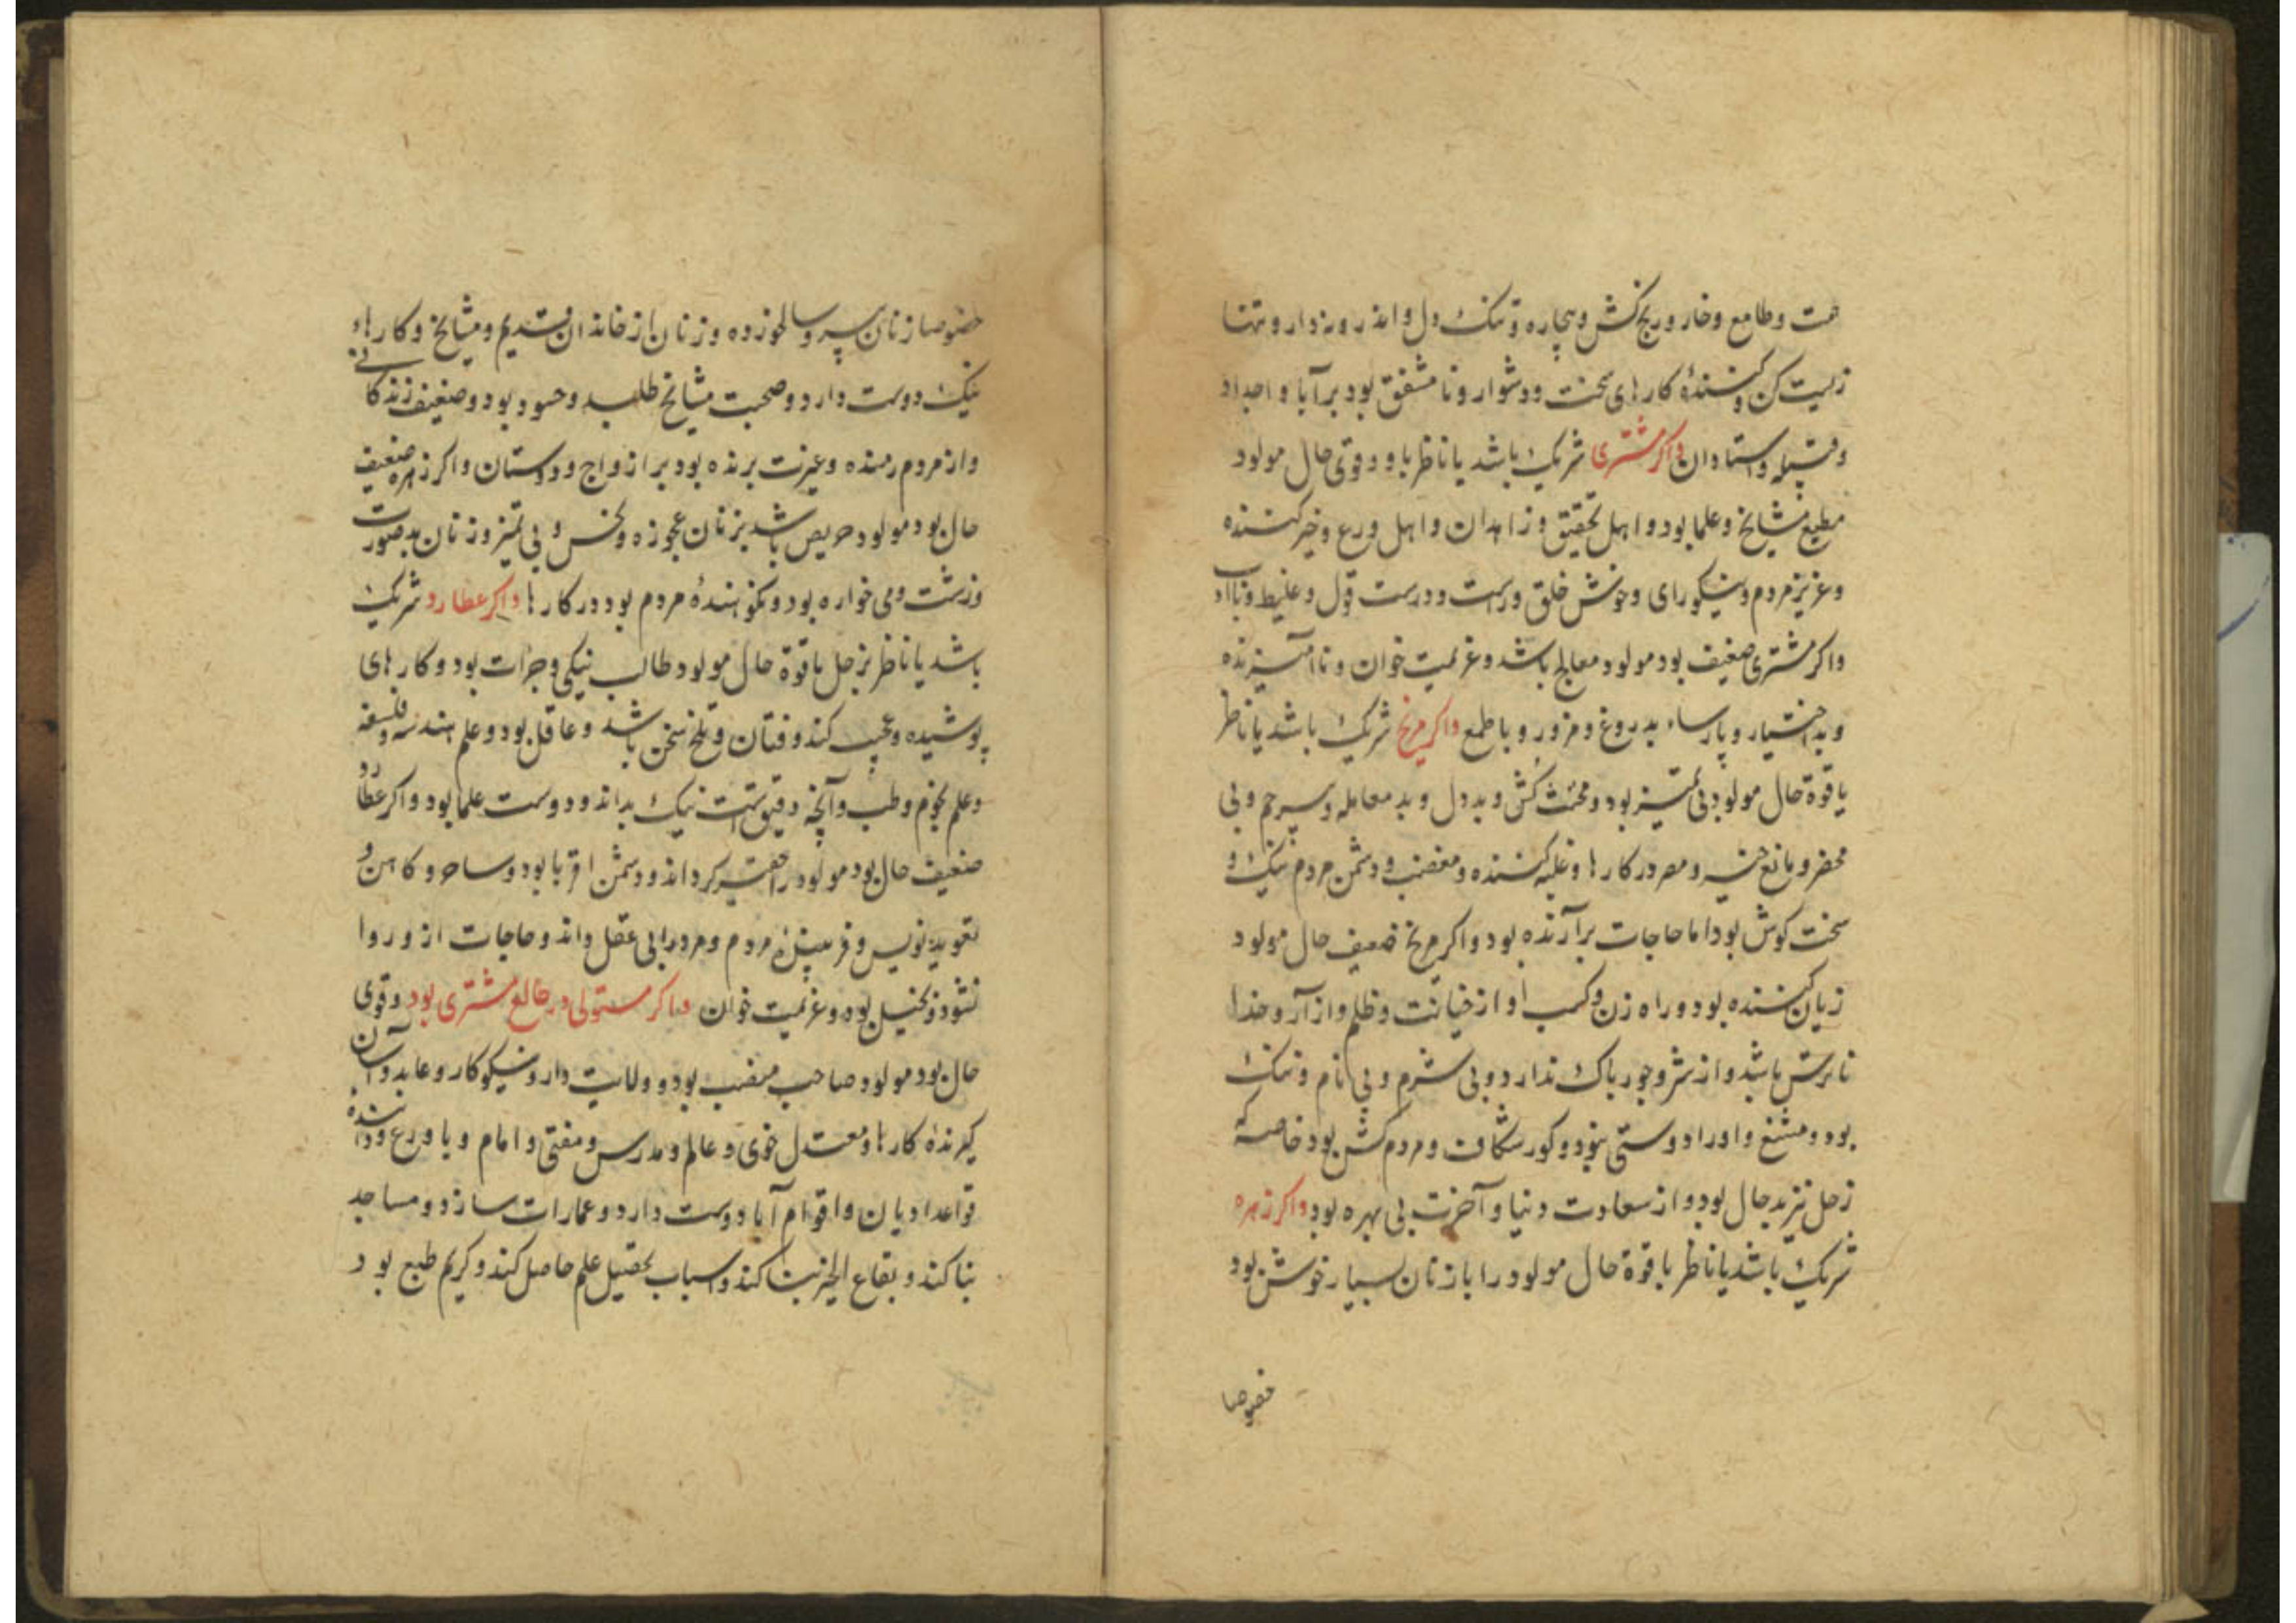 همت و طامع و خوار و رنج کش و بیچاره و تنک دل و اندروه‌دار و تنها
زیست کن و کشندهٔ کارهای سخت و دشوار و نا مشفق بود بر آبا و اجداد
و قبیله و استادان واکر مشتری شریک باشد یا ناظر باو و قوی حال مولود
مطیع مشایخ و علما بود و اهل تحقیق و زاهدان و اهل ورع و خیر کننده
و عزیز مردم و نیکورای و خوش خلق و راست و درست قول و غلیظ و
واکر مشتری ضعیف بود مولود معالج باشد و عزیمت خوان و ناآمیزنده
و بد اختیار و پارساء بدروغ و مزور و با طمع واکر مریخ شریک باشد یا ناظر
با قوة حال مولود بی تمییز بود و مخنث کش و بددل و بد معامله و بیرحم و بی
محضر و مانع خیر و مصر در کارها و غلبه کننده و مغضب و دشمن مردم نیک و
سخت کوش بود اما حاجات برآرنده بود واکر مریخ ضعیف حال مولود
زیان کننده بود و راه زن و کسب او از خیانت و ظلم و از آز و خدا
ناترس باشد و از شر و جور باک ندارد و بی شرم و بی نام و ننک
بود و مشنع و او را دوستی نبود و کور شکافت و مردم کش بود خاصه که
زحل نیز بدحال بود و از سعادت دنیا و آخرت بی بهره بود واکر زهره
شریک باشد یا ناظر با قوة حال مولود را با زنان بسیار خوش بود
خصوصا
خصوصا زنان پیر و سالخورده و زنان از خاندان قدیم و مشایخ و کارهاء
نیک دوست دارد و صحبت مشایخ طلبد و حسود بود و ضعیف زندکانی
و از مردم رمنده و غیرت برنده بود بر ازواج و دوستان واکر زهره ضعیف
حال بود مولود حریص باشد بزنان عجوزه و نحس و بی تمیز و زنان بدصورت
و زشت و می خواره بود و نکوهندهٔ مردم بود در کارها واکر عطارد شریک
باشد یا ناظر بزحل با قوة حال مولود طالب نیکی و جرات بود و کارهای
پوشیده و عجیب کند و فتان و تلخ سخن باشد و عاقل بود و علم هندسه و فلسفه
و علم نجوم و طب و آنچه دقیق است نیک بداند و دوست علما بود واکر عطارد
ضعیف حال بود مولود را حقیر کرداند و دشمن اقربا بود و ساحر و کاهن و
تعویذ نویس و فریبندهٔ مردم و مردم را بی عقل داند و حاجات ازو روا
نشود و بخیل بود و عزیمت خوان واکر مستولی در طالع مشتری بود و قوی
حال بود مولود صاحب منصب بود و ولایت دار و نیکوکار و عابد و آسان
کیرندهٔ کارها و معتدل خوی و عالم و مدرس و مفتی و امام و با ورع و دانندهٔ
قواعد ادیان و اقوام آبا دوست دارد و عمارات سازد و مساجد
بنا کند و بقاع الخیر بنا کند و اسباب تحصیل علم حاصل کند و کریم طبع بود